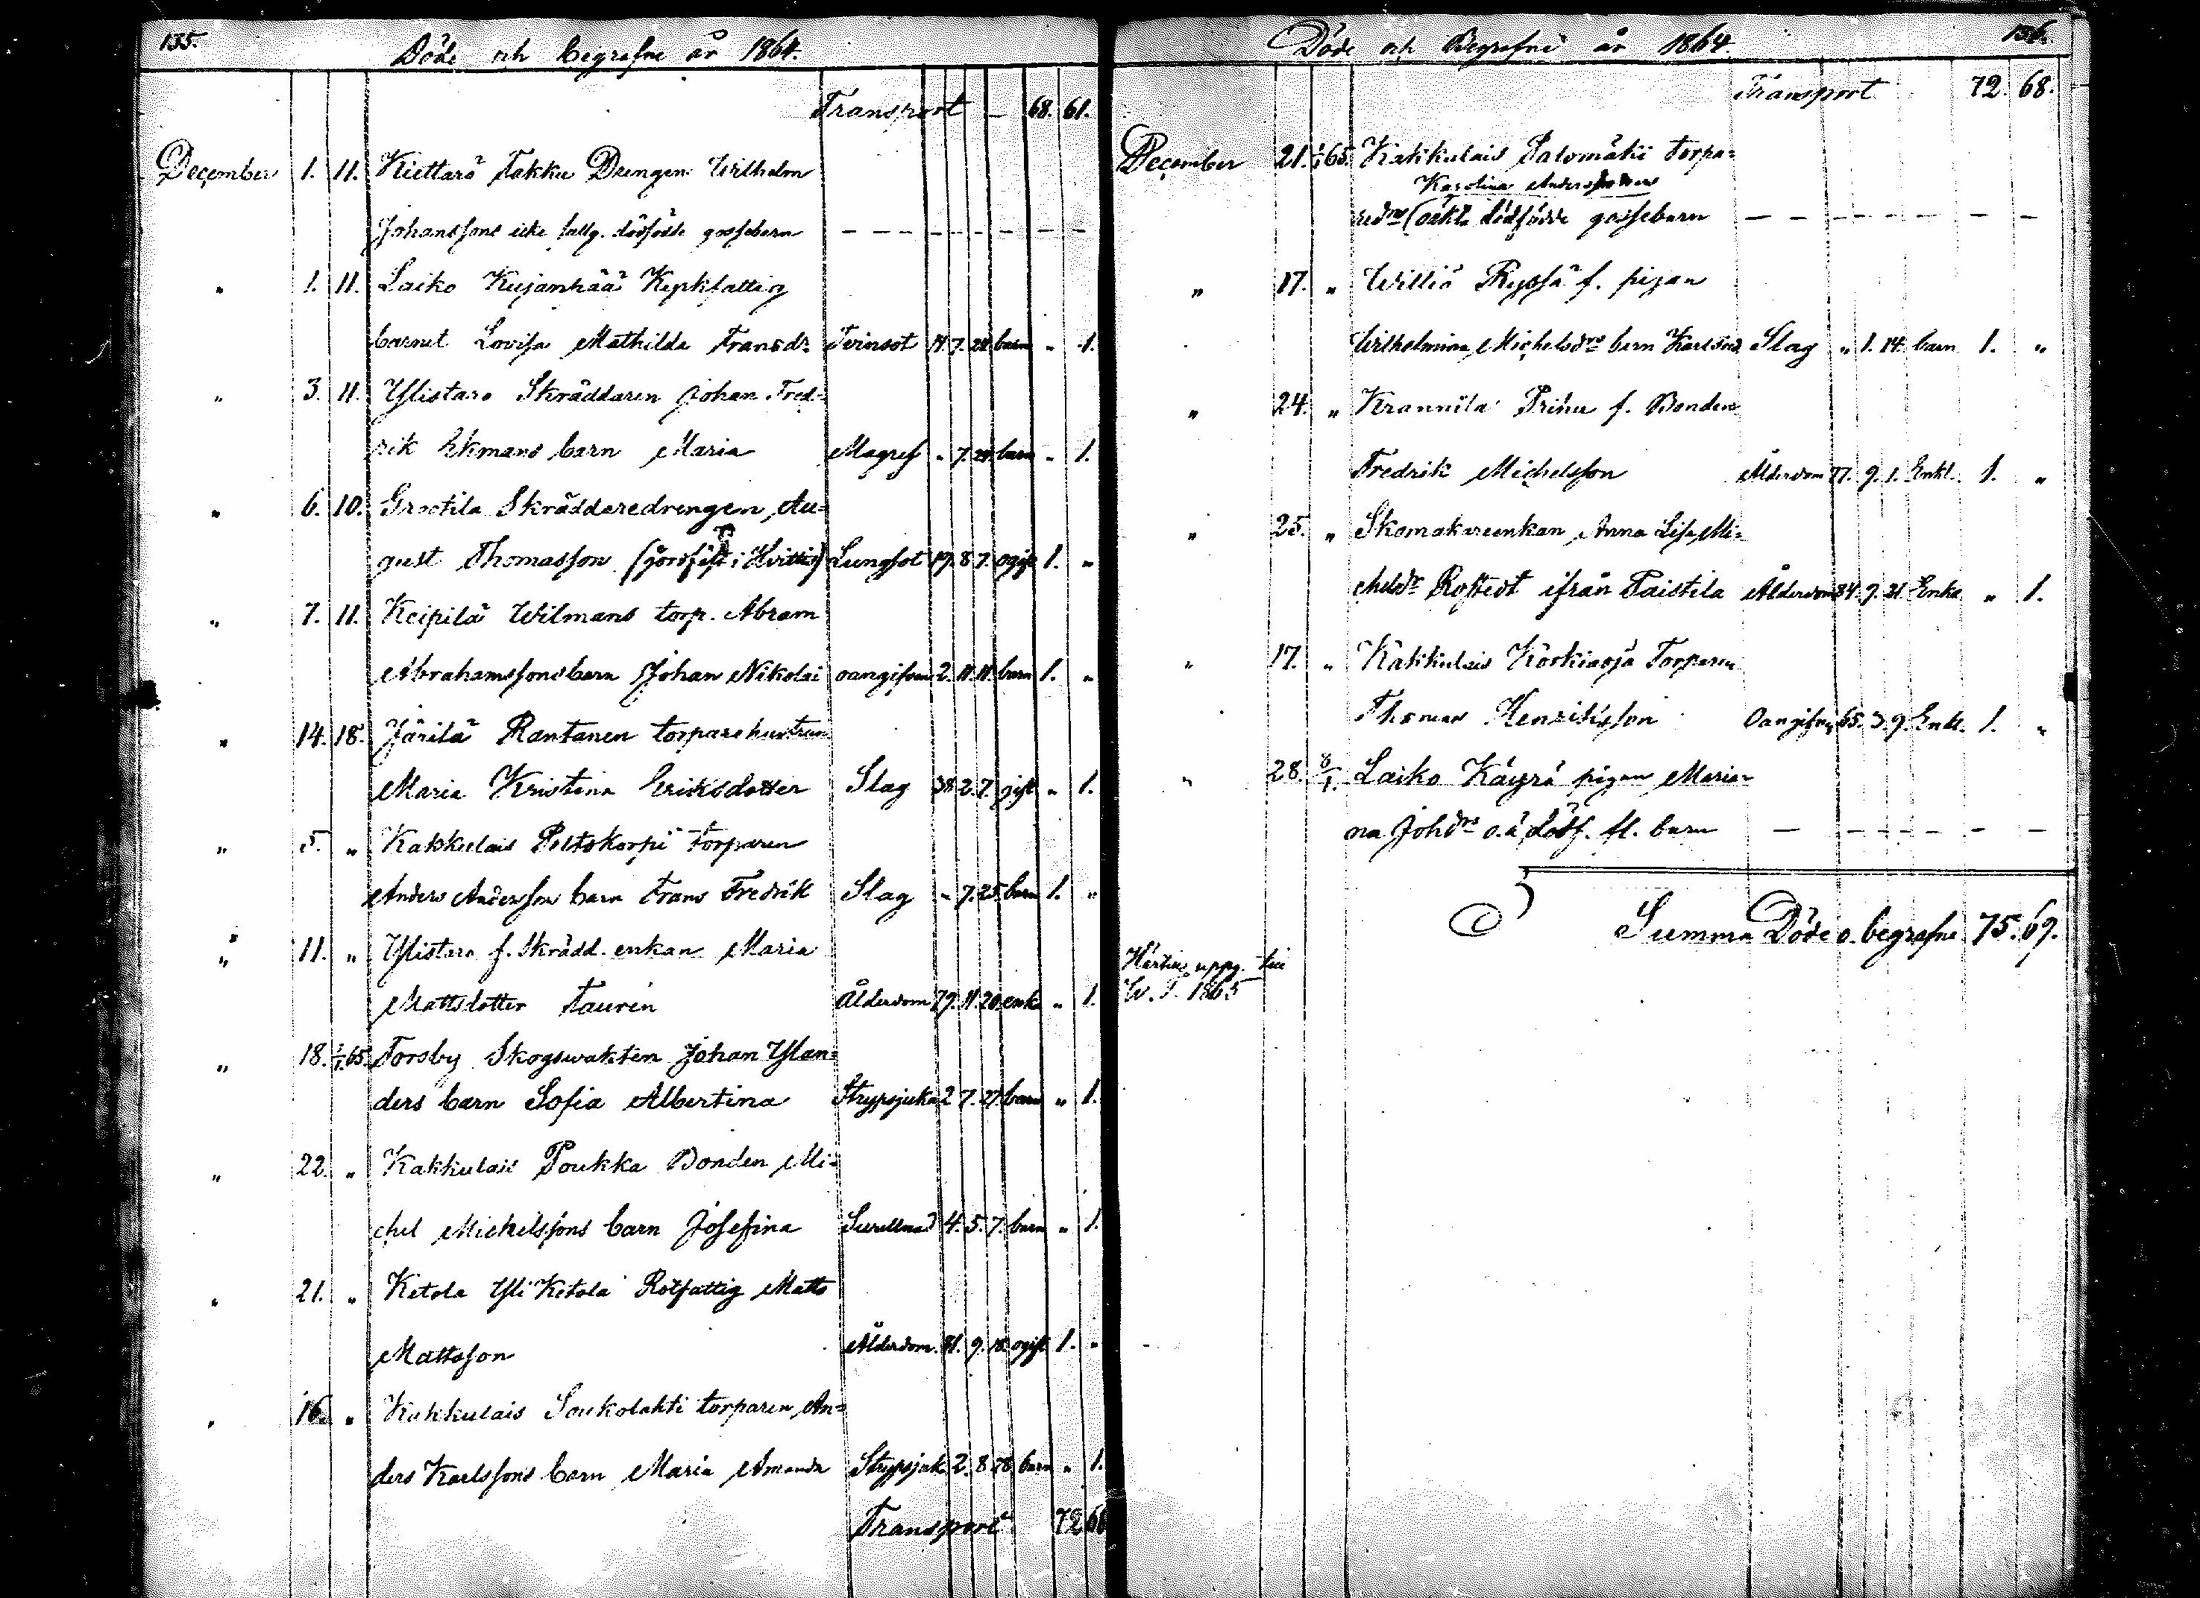 135.
Döde och begrafne år 1864.
Transport — 68. 61.
December 1. 11. Kiettarö Takku Drengen Wilhelm
Johanssons icke fullg. dödfödde gossebarn — — — — — — — —
" 1. 11. Laiko Kujanpää Kyrkfattig
barnet Lovisa Mathilda Fransdr Tvinsot 14 7. 28 barn " 1.
" 3. 11. Ylistaro Skräddaren Johan Fred-
rik Ekmans barn Maria Magref " 7. 24. barn " 1.
" 6. 10. Grootila Skräddaredrengen, Au-
gust Thomasson (jordfäst i Hvittis) Lungsot 19. 8 7. ogift 1. "
" 7. 11. Keipilä Wilmans torp. Abram
Abrahamssons barn Johan Nikolai oangifven 2. 11. 11. barn 1. "
" 14. 18. Järilä Rantanen torparehustrun
Maria Kristina Eriksdotter Slag 38 2. 7. gift " 1.
" 5. " Kakkulais Peltokorpi torparen
Anders Andersson barn Frans Fredrik Slag " 7. 25. barn 1. "
" 11. " Ylistaro f. Skrädd. enkan Maria
Mattsdotter Taurén Ålderdom 79. 11. 20. enka " 1.
" 18. 1/1 65. Forsby Skogsvakten Johan Ylan-
ders barn Sofia Albertina Strypsjuka 2 7. 27. barn " 1.
" 22. " Kakkulais Poukka Bonden Mi-
chel Michelssons barn Josefina 4. 5. 7. barn " 1.
" 21. " Ketola Yli Ketola Rotfattig Matts
Mattsson Ålderdom. 81. 9. 18. ogift 1. "
" 16. " Kakkulais Soukolahti torparen, An-
ders Karlssons barn Maria Amanda Strypsjuk 2. 8. 28 barn " 1.
Transport 72 68
136.
Döde och Begrafne år 1864.
Transport 72. 68.
December 21. 1/1 65. Kakkulais Salomäki torpa-
Karolina Andersdotters
redrs (oäkta dödfödde gossebarn — — — — — — —
" 17. " Williö Ryssä f. pigan
Wilhelmina Michelsdrs barn Karl Slag " 1. 14. barn 1. "
" 24. " Krannila Prihu f. Bonden
Fredrik Michelsson Ålderdom 77. 9. 1. Enkl. 1. "
" 25. " Skomakareenkan, Anna Lisa Mi-
chelsdr Rostedt ifrån Paistila Ålderdom 84. 9. 21. Enka " 1.
" 17. " Kakkulais Korkiaoja Torparen
Thomas Henriksson Oangifven 65. 3. 9. Enkl. 1. "
" 28. 8/1. Laiko Käyrä pigan Maria-
na Johdrs o.ä. dödf. fl. barn — — — — — — —
Summa Döde o. begrafne 75. 69.
Härtill uppg. till
W. T. 1865